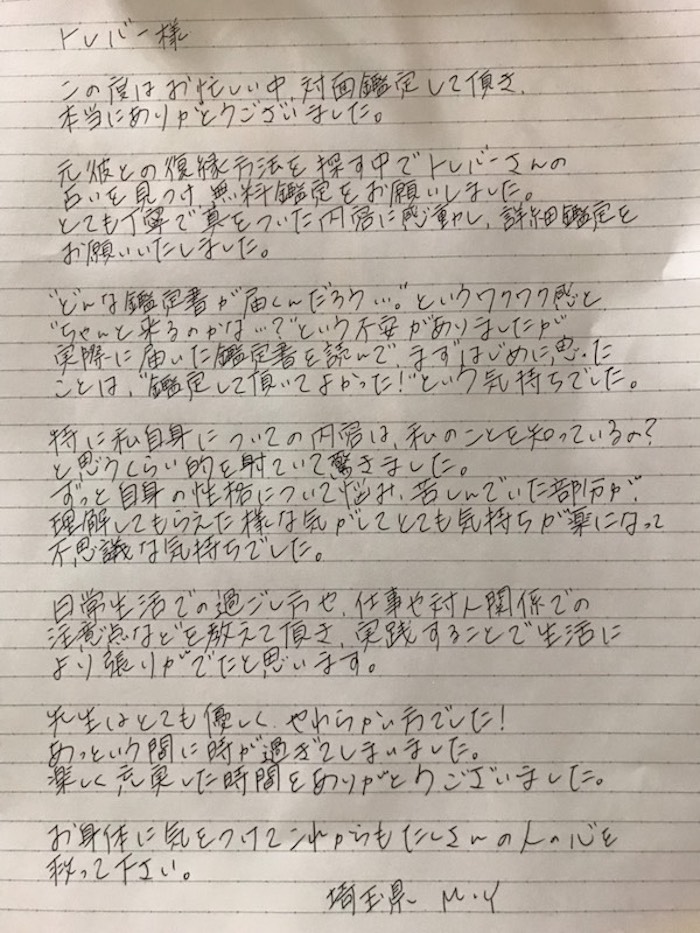 トレバー様
この度はお忙しい中、対面鑑定して頂き、
本当にありがとうございました。
元彼との復縁方法を探す中でトレバーさんの
占いを見つけ、無料鑑定をお願いしました。
とても丁寧で真をついた内容に感動し、詳細鑑定を
お願いいたしました。
"どんな鑑定書が届くんだろう…。"というワクワク感と、
"ちゃんと来るのかな…?"という不安がありましたが
実際に届いた鑑定書を読んで、まずはじめに思った
ことは、"鑑定して頂いてよかった!"という気持ちでした。
特に私自身についての内容は、私のことを知っているの?
と思うくらい的を射ていて驚きました。
ずっと自身の性格について悩み、苦しんでいた部分が、
理解してもらえた様な気がしてとても気持ちが楽になって
不思議な気持ちでした。
日常生活での過ごし方や、仕事や対人関係での
注意点などを教えて頂き、実践することで生活に
より張りがでたと思います。
先生はとても優しく、やわらかい方でした!
あっという間に時が過ぎてしまいました。
楽しく、充実した時間をありがとうございました。
お身体に気をつけてこれからもたくさんの人の心を
救って下さい。
埼玉県 M・Y